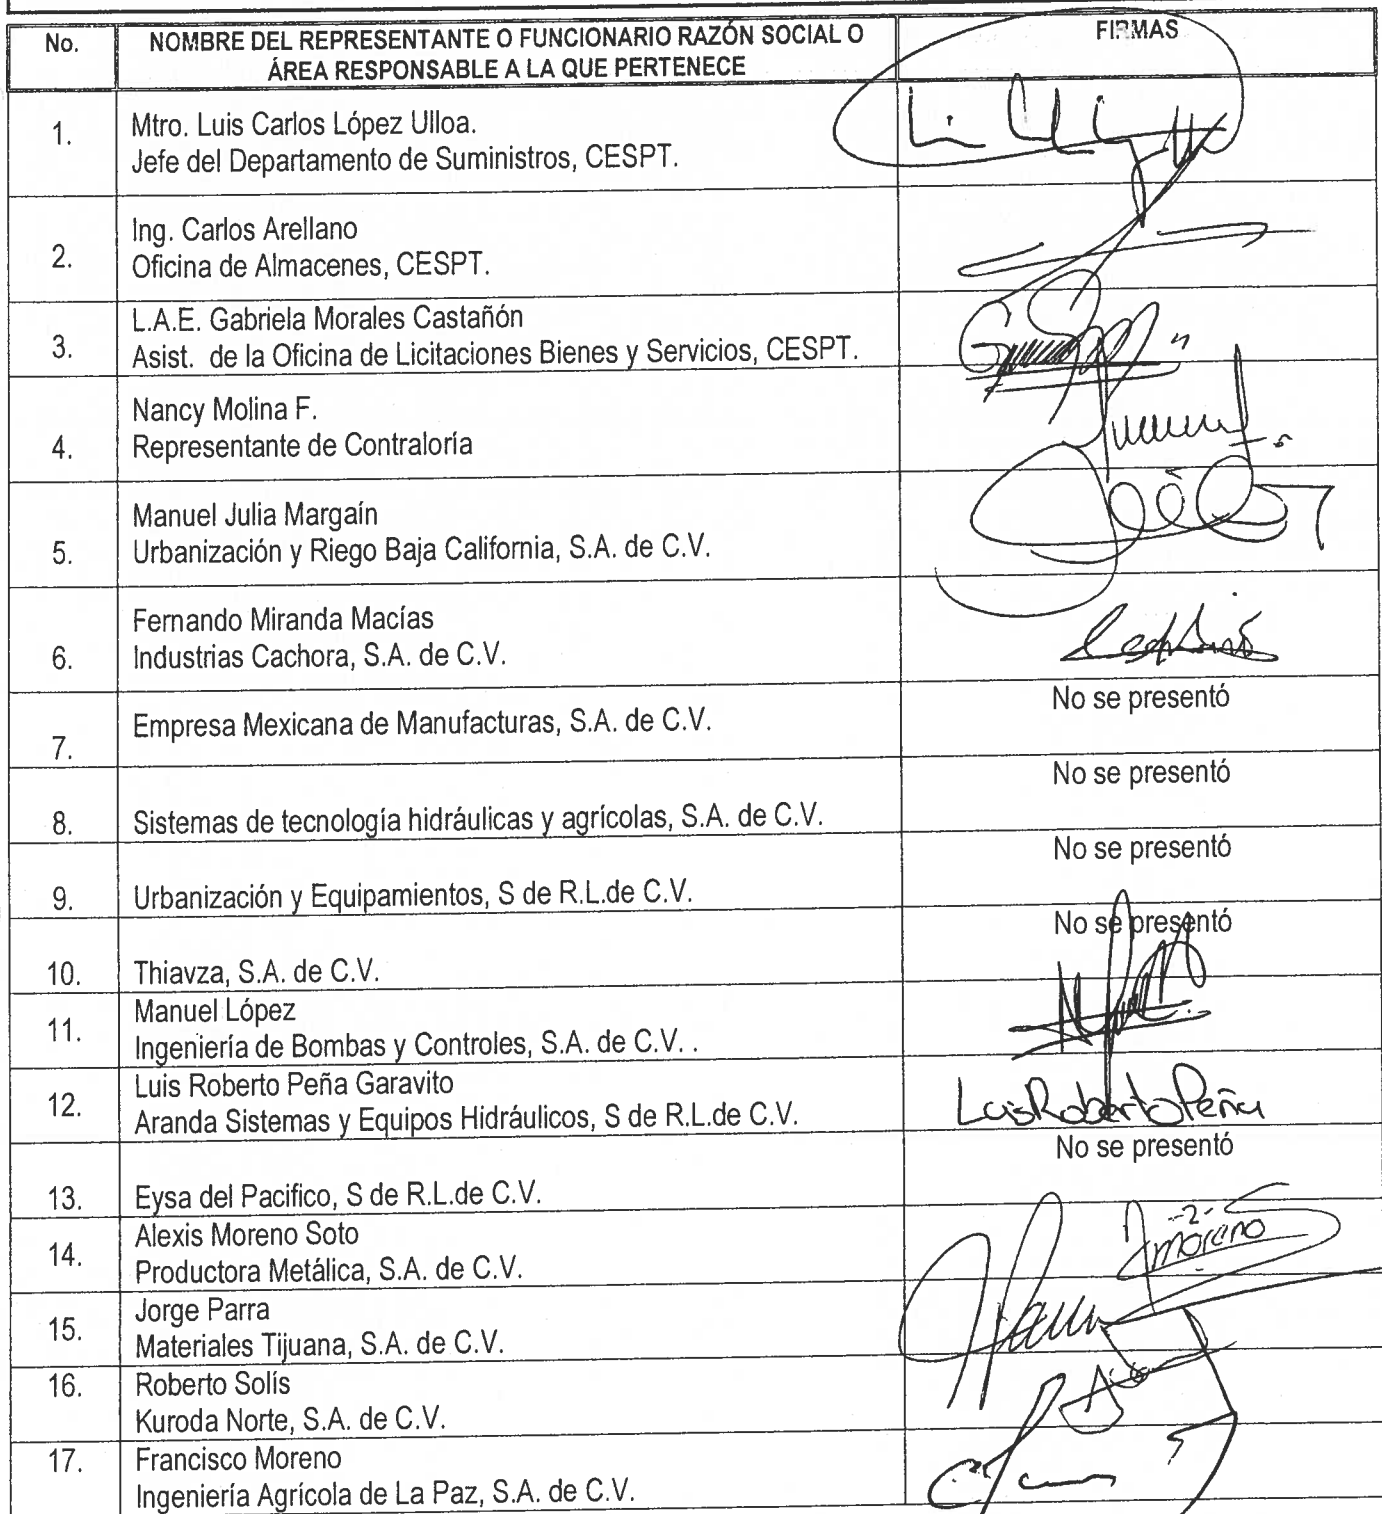 No. NOMBRE DEL REPRESENTANTE O FUNCIONARIO RAZÓN SOCIAL O FIRMAS
ÁREA RESPONSABLE A LA QUE PERTENECE
1. Mtro. Luis Carlos López Ulloa.
Jefe del Departamento de Suministros, CESPT.
2. Ing. Carlos Arellano
Oficina de Almacenes, CESPT.
3. L.A.E. Gabriela Morales Castañón
Asist. de la Oficina de Licitaciones Bienes y Servicios, CESPT.
4. Nancy Molina F.
Representante de Contraloría
5. Manuel Julia Margaín
Urbanización y Riego Baja California, S.A. de C.V.
6. Fernando Miranda Macías
Industrias Cachora, S.A. de C.V.
7. Empresa Mexicana de Manufacturas, S.A. de C.V. No se presentó
8. Sistemas de tecnología hidráulicas y agrícolas, S.A. de C.V. No se presentó
9. Urbanización y Equipamientos, S de R.L.de C.V. No se presentó
10. Thiavza, S.A. de C.V. No se presentó
11. Manuel López
Ingeniería de Bombas y Controles, S.A. de C.V. .
12. Luis Roberto Peña Garavito
Aranda Sistemas y Equipos Hidráulicos, S de R.L.de C.V. Luis Roberto Peña
13. Eysa del Pacifico, S de R.L.de C.V. No se presentó
14. Alexis Moreno Soto moreno
Productora Metálica, S.A. de C.V.
15. Jorge Parra
Materiales Tijuana, S.A. de C.V.
16. Roberto Solís
Kuroda Norte, S.A. de C.V.
17. Francisco Moreno
Ingeniería Agrícola de La Paz, S.A. de C.V.